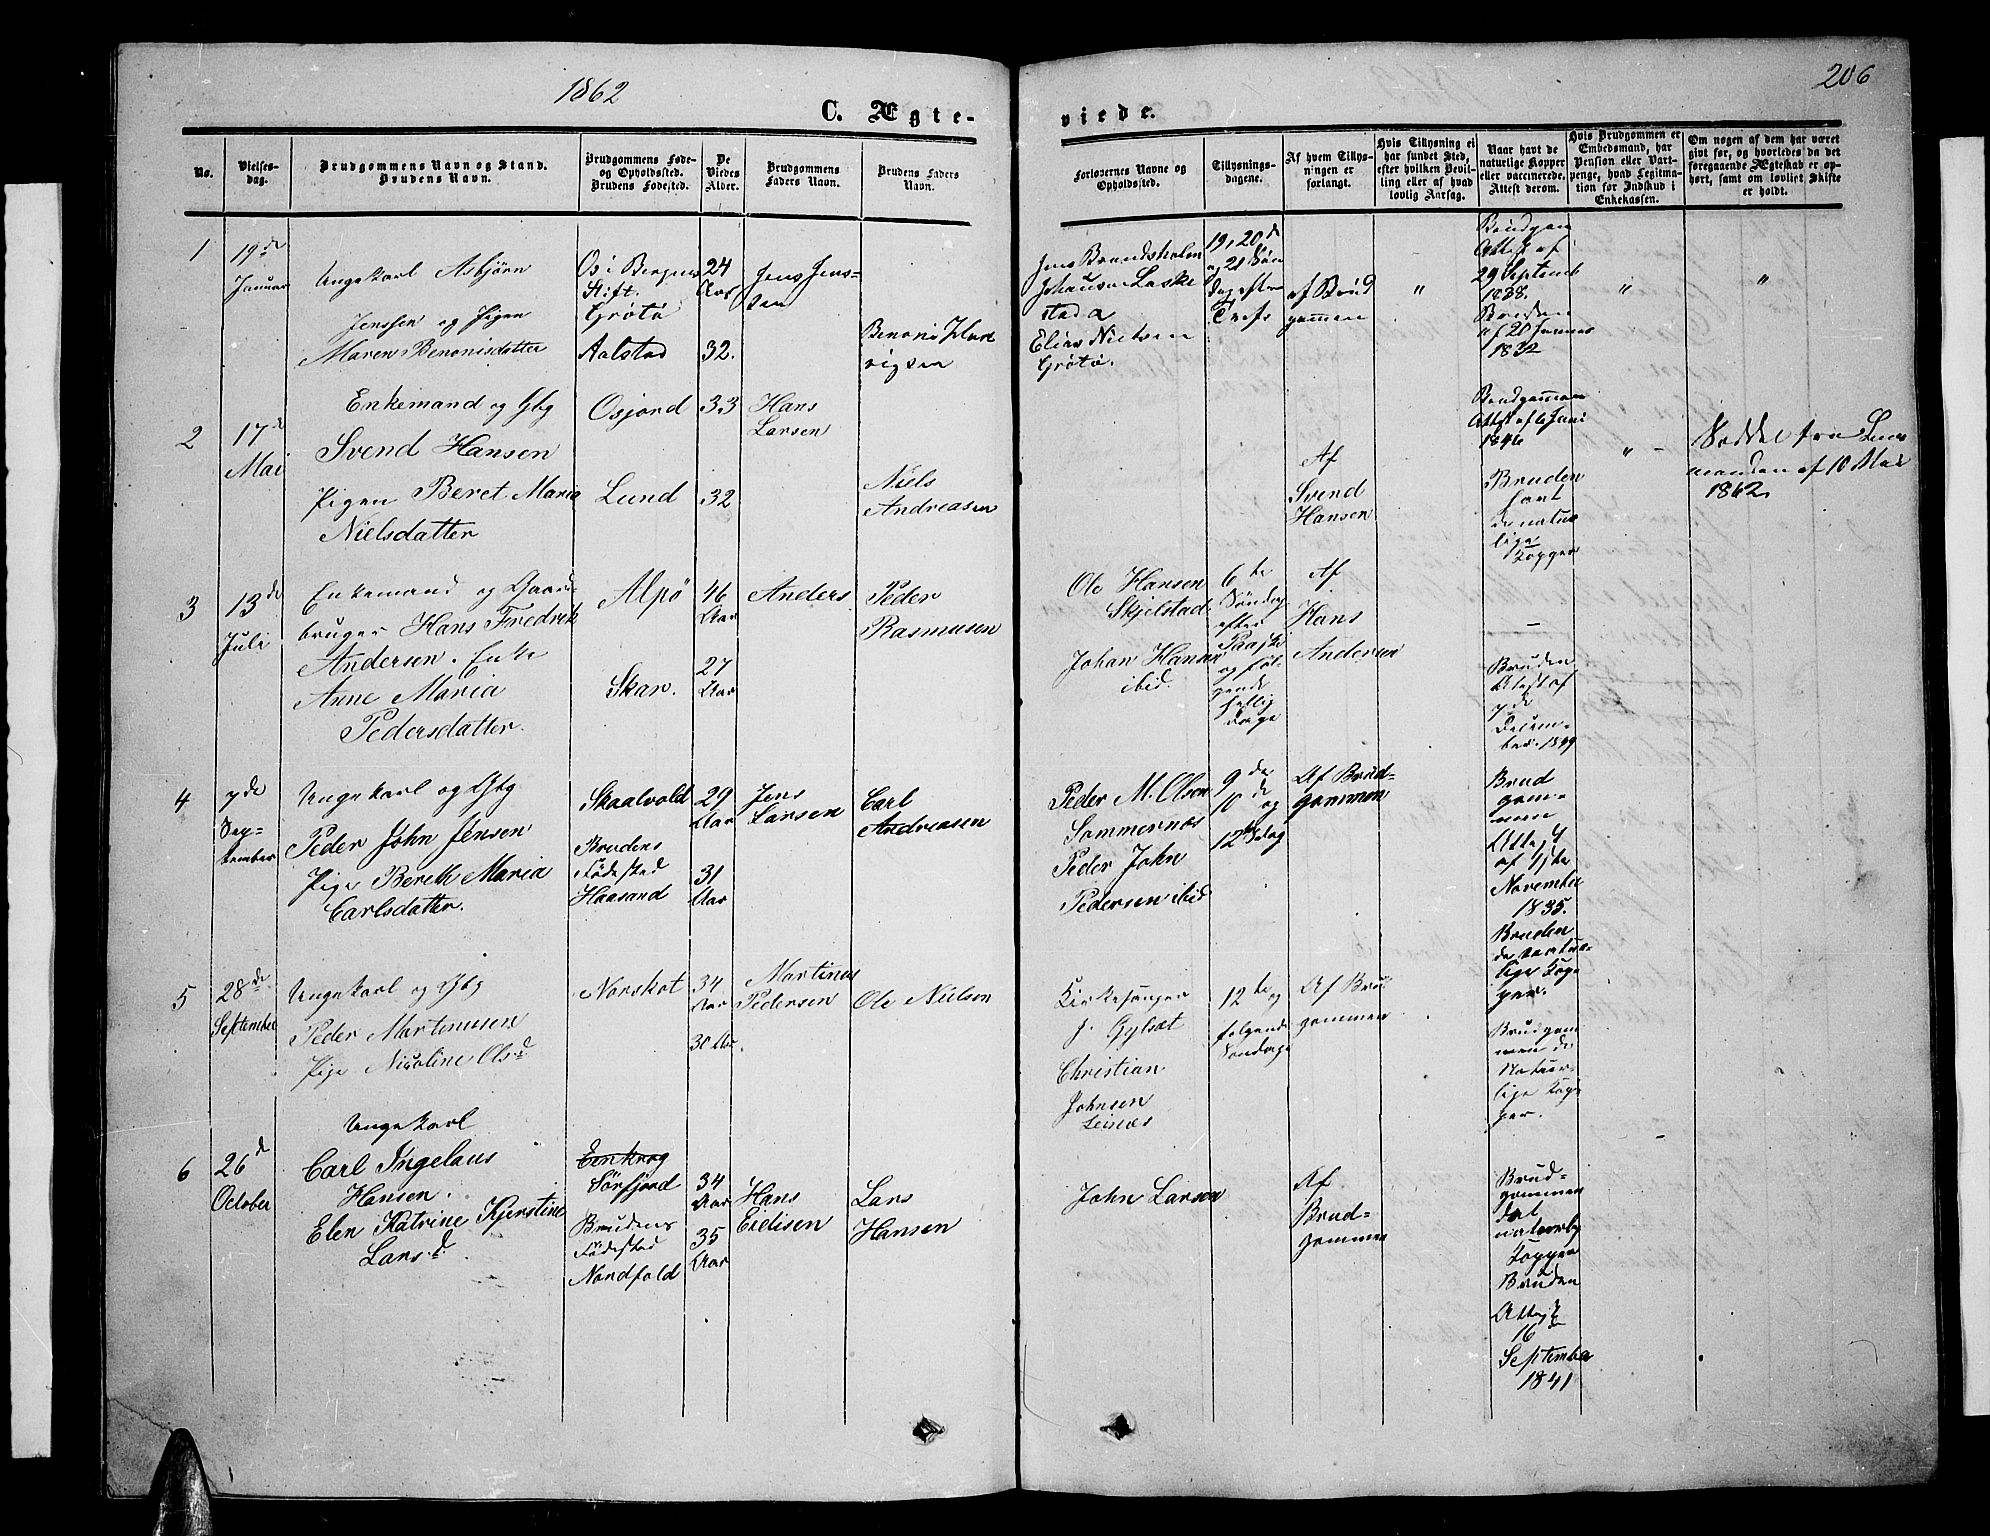 1862
206
C. Ægte-
viede.
No.
Vielses-
dag.
Brudgommens Navn og Stand.
Brudens Navn.
Brudgommens Føde-
og Opholdssted.
Brudens Fødested.
De
Viedes
Alder.
Brudgommens
Faders Navn.
Brudens Faders
Navn.
Forlovernes Navne og
Opholdssted.
Tillysnings-
dagene.
Af hvem Tillys-
ningen er
forlangt.
Hvis Tillysning ei
har fundet Sted,
efter hvilken Bevil-
ling eller af hvad
lovlig Aarsag.
Naar havt de
naturlige Kopper
eller vaccinerede.
Attest derom.
Hvis Brudgommen er
Embedsmand, har
Pension eller Vart-
penge, hvad Legitima-
tion for Indskud i
Enkekassen.
Om nogen af dem har været
givt før, og hvorledes da det
foregaaende Ægteskab er op-
hørt, samt om lovligt Skifte
er holdt.
1
19de
Januar
Ungekarl Asbjörn
Jenssen og Pigen
Maren Benonisdatter
Os i Bergens
Stift.
Grötö
Aalstad
24
Aar
32.
Jens Jens-
sen
Benoni
Jens Brandsholm
Elias Nielsen
Grötö.
19, 20de
og 21 Søn
dag efter
af Brud
gommen
"
Brudgom
Attest af
29 Septemb
1838.
Bruden
af 20 Januar
1832
"
"
2
17de
Mai
Enkemand og Gbg
Svend Hansen
Pigen Beret Maria
Nielsdatter
Osjord
Lund
33
32
Hans
Larsen
Niels
Andreasen
Af
Svend
Hansen
Brudgommen
Attest af 6 Juni
1846
Bruden
havt
de natur
lige
Kopper
" -
Seddel fra Lens
manden af 10 Mai
1862
3
13de
Juli
Enkemand og Gaard
bruger Hans Fredrik
Andersen. Enke
Anne Maria
Pedersdatter.
Alpö
Skar.
46
Aar
27
Aar
Anders
Peder
Rasmusen
Ole Hansen
Skjelstad
Johan Hansen
ibid.
6te
Söndag
efter
Paaske
og föl-
gende
hellig
dage
Af
Hans
Andersen
-
Bruden
Attest af
7de
Decem-
ber. 1849
4
7de
Sep-
tember
Ungekarl og Gbg
Peder John Jensen
Pige Bereth Maria
Carlsdatter.
Skaalvold
Brudens
Födested
Haasand
29
Aar
31
Aar
Jens
Larsen
Carl
Andreasen
Peder M. Olsen
Sommernæs
Peder John
Pedersen ibid
9de
10de og
12te Sdag
Af Brud-
gommen
Brud
gom-
men
Attest
af
November
1835.
Bruden
de natur-
lige Kop-
per.
5
28de
September
Ungekarl og Gbg
Peder Martenusen
Pige Nicoline Olsd
Norskot
34
Aar
30 Aar
Martinus
Pedersen
Ole Nielsen
Kirkesanger
J. Gylset
Christian
Johnsen
Leines
12te og
folgende
Sondage
Af Brud
gommen
Brudgom
men de
Natur-
lige Kop-
per.
6
26de
October
Ungekarl
Carl Ingelaus
Hansen.
Elen Katrine Kjerstine
Larsd.
Eenkrog
Sörfjord
Brudens
Födestad
Nordfold
34
Aar
35
Aar
Hans
Eidisen
Lars
Hansen
John Larsen
Af
Brud-
gommen
Brud-
gommen
det
naturlig
Kopper
Bruden
Attest
16de
September
1841